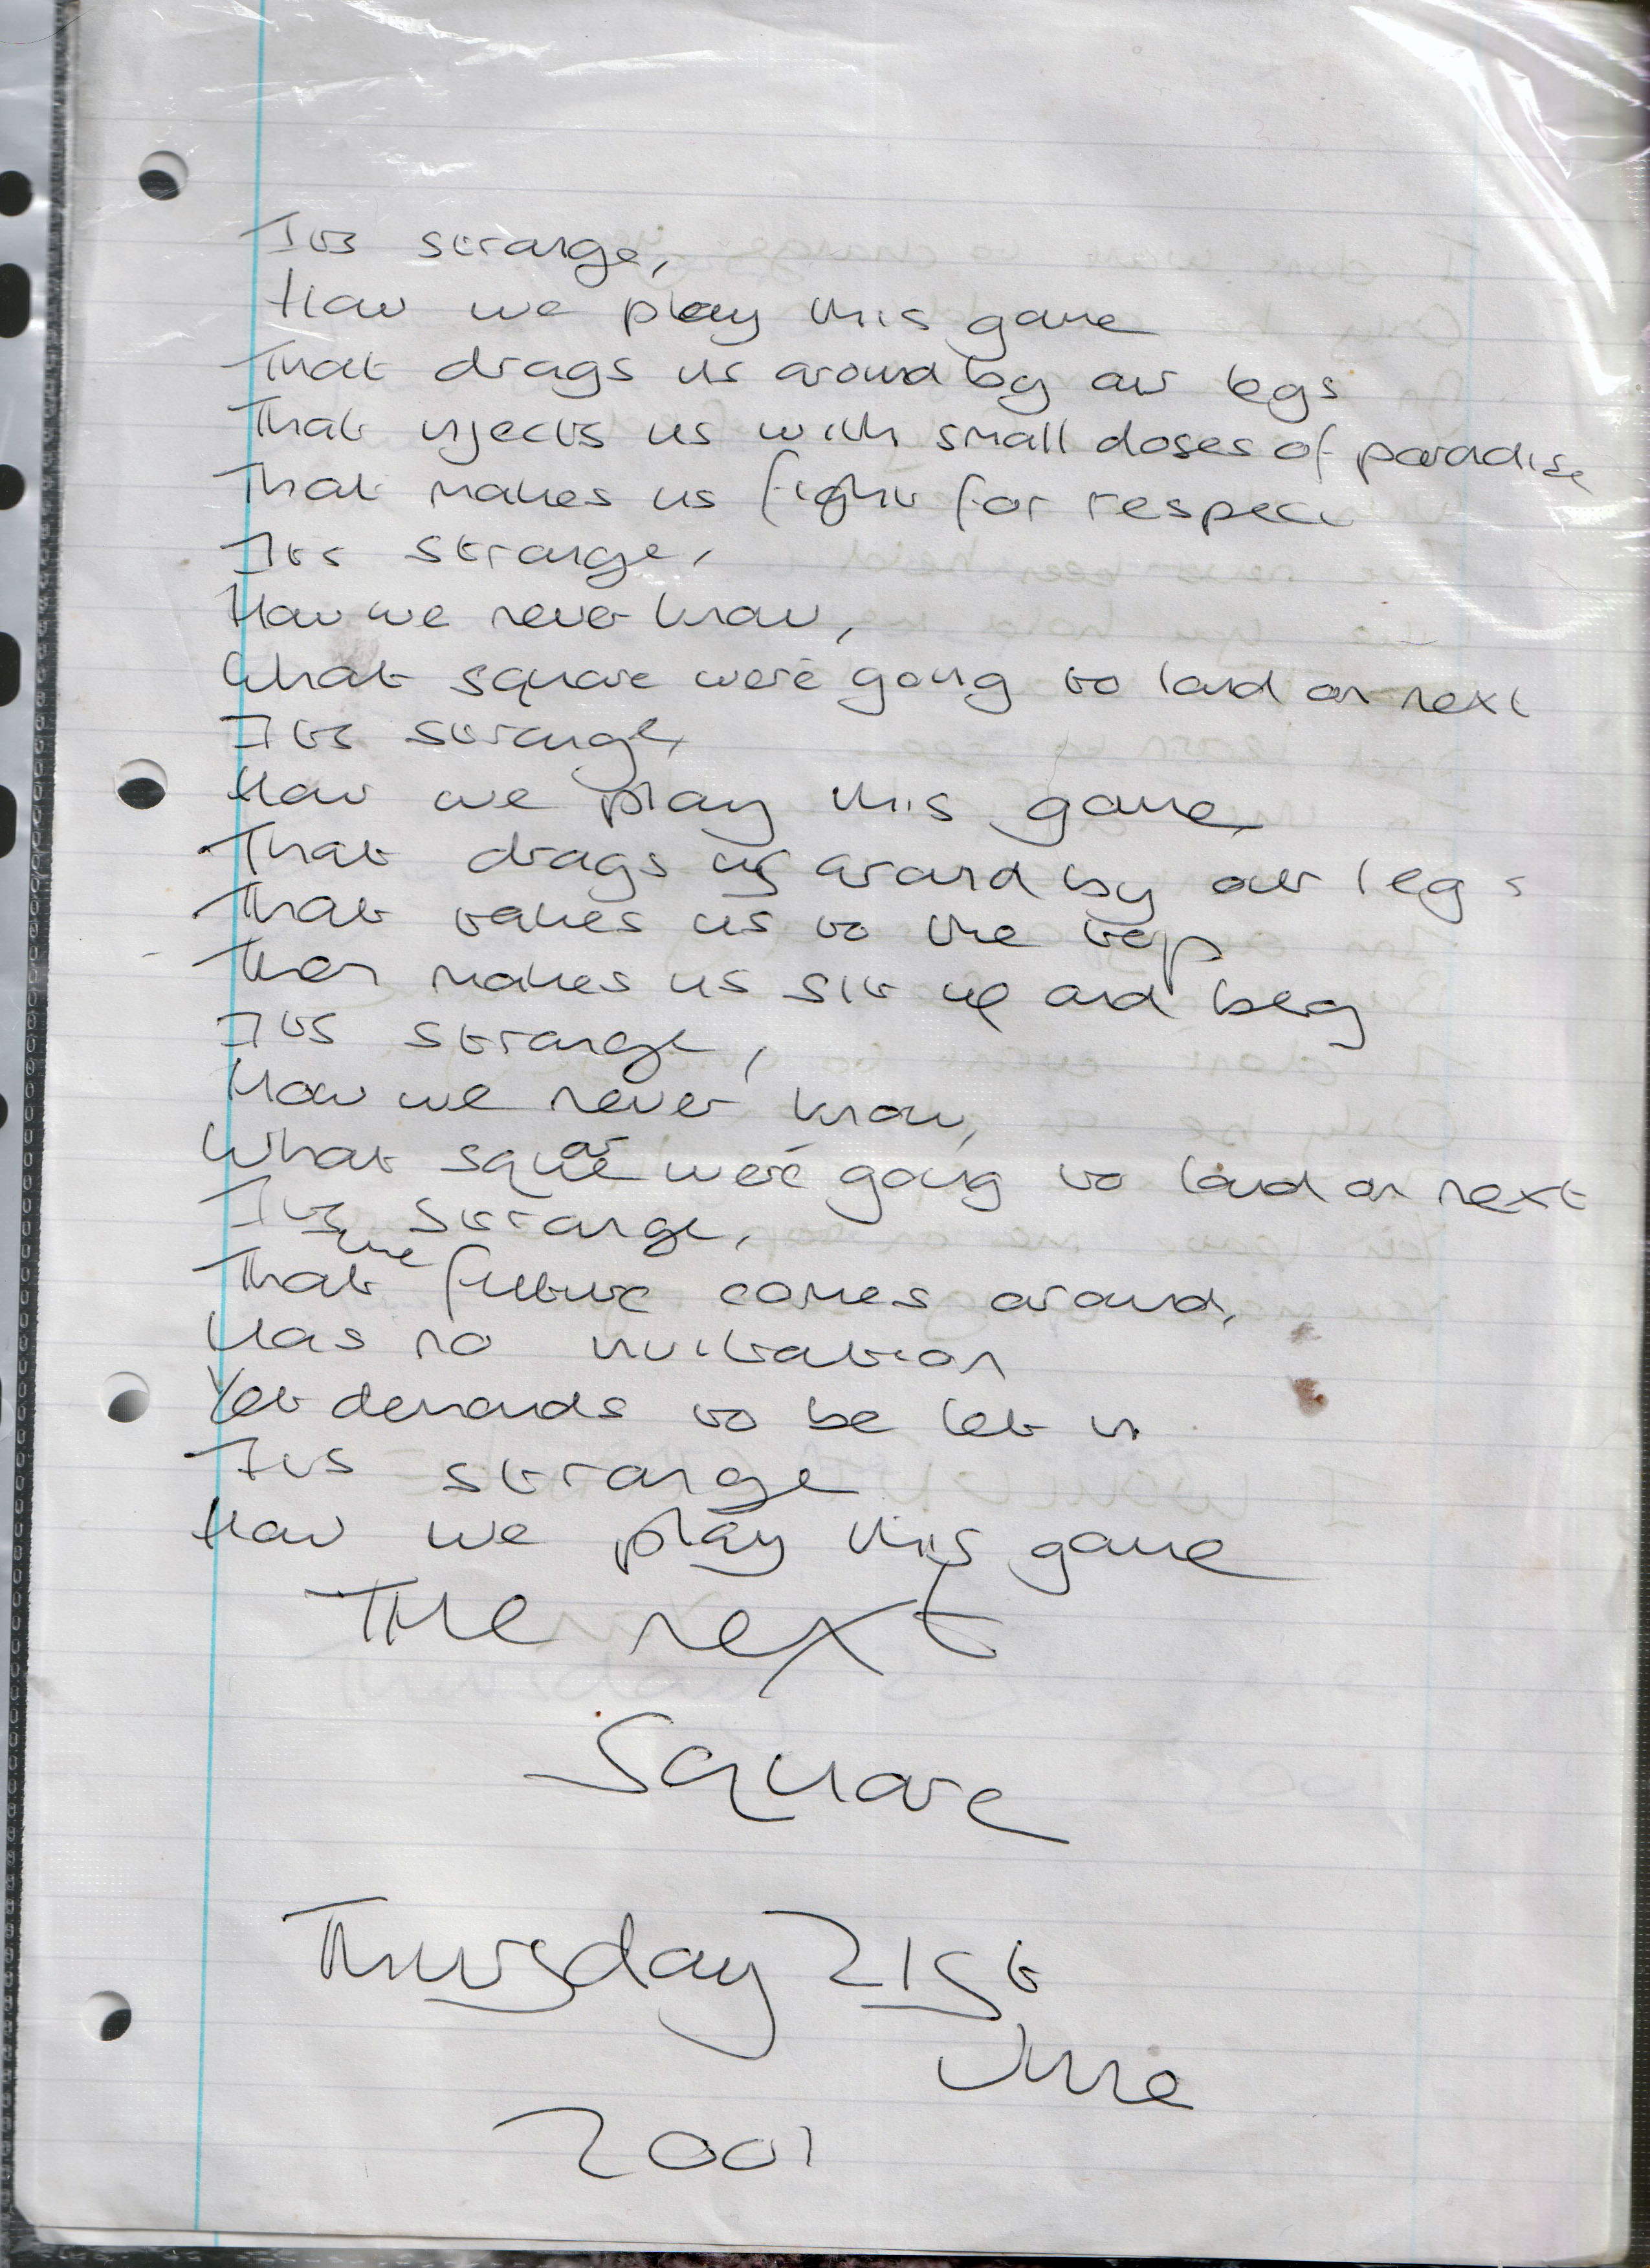 Its strange,
How we play this game
That drags us around by our legs
That injects us with small doses of paradise
That makes us fight for respect
Its strange,
How we never know,
What square we're going to land on next
Its strange,
How we play this game,
That drags us around by our legs
That takes us to the top
Then makes us sit up and beg
Its strange,
How we never know,
What square we're going to land on next
Its strange,
That the future comes around,
Has no invitation
Yet demands to be let in
Its strange
How we play this game
THe next
Square
Thursday 21st
June
2001